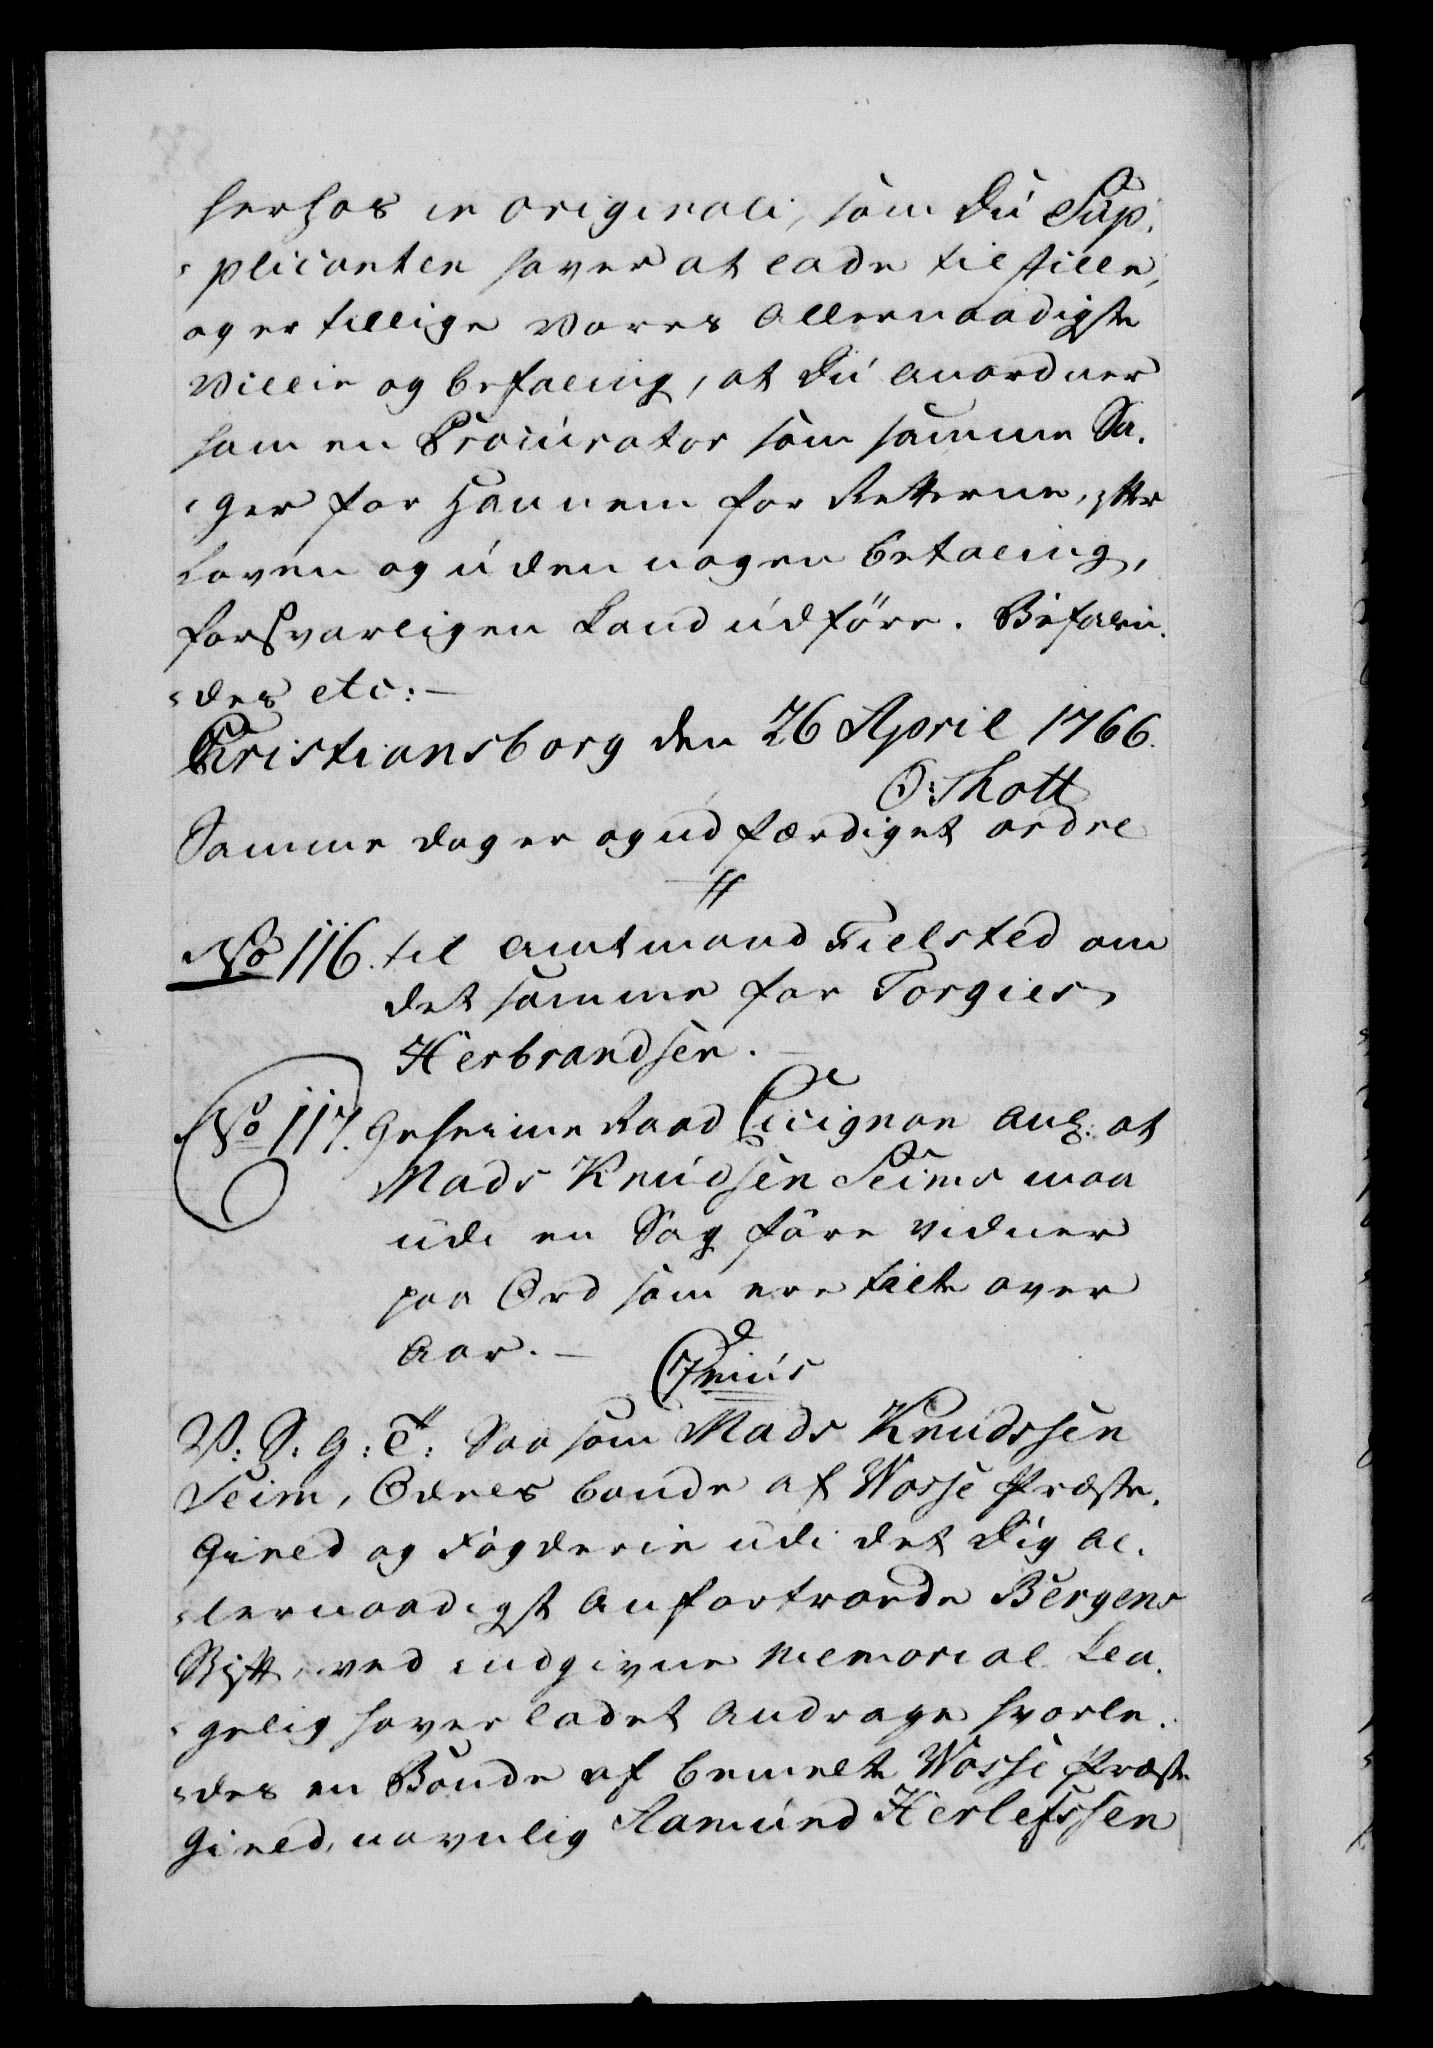 herhos in originali, som du Sup-
plicanten haver at lade tilstille,
og er tillige Vores Allernaadigste
Villie og befaling, at du anordner
ham en Procurator som samme Sa-
ger for Hannem for Retterne, efter
Loven og uden nogen betaling,
forsvarligen kand udføre. Befalen-
des etc:
Christiansborg den 26 April 1766.
O: Thott
Samme dag er og udfærdiget ordre
No 116. til Amtmand Fielsted om
det samme for Torgies
Herbrandsen.
No 117. Geheime Raad Cicignon Anl: at
Mads Knudsen Seims maa
udi en Sag føre vidner
paa Ord som ere talte over
Aar.
V: S: G: T: Saasom Mads Knudssen
Seim, Odels bonde af Wosse Præste-
Gield og Fogderie udi det dig al-
lernaadigst anfortroede Bergens
Stift, ved indgivne Memorial kla-
gelig haver ladet andrage hvorle-
des en Bonde af bemelte Wosse Præste
Gield, navnlig Aamund Herlefssen